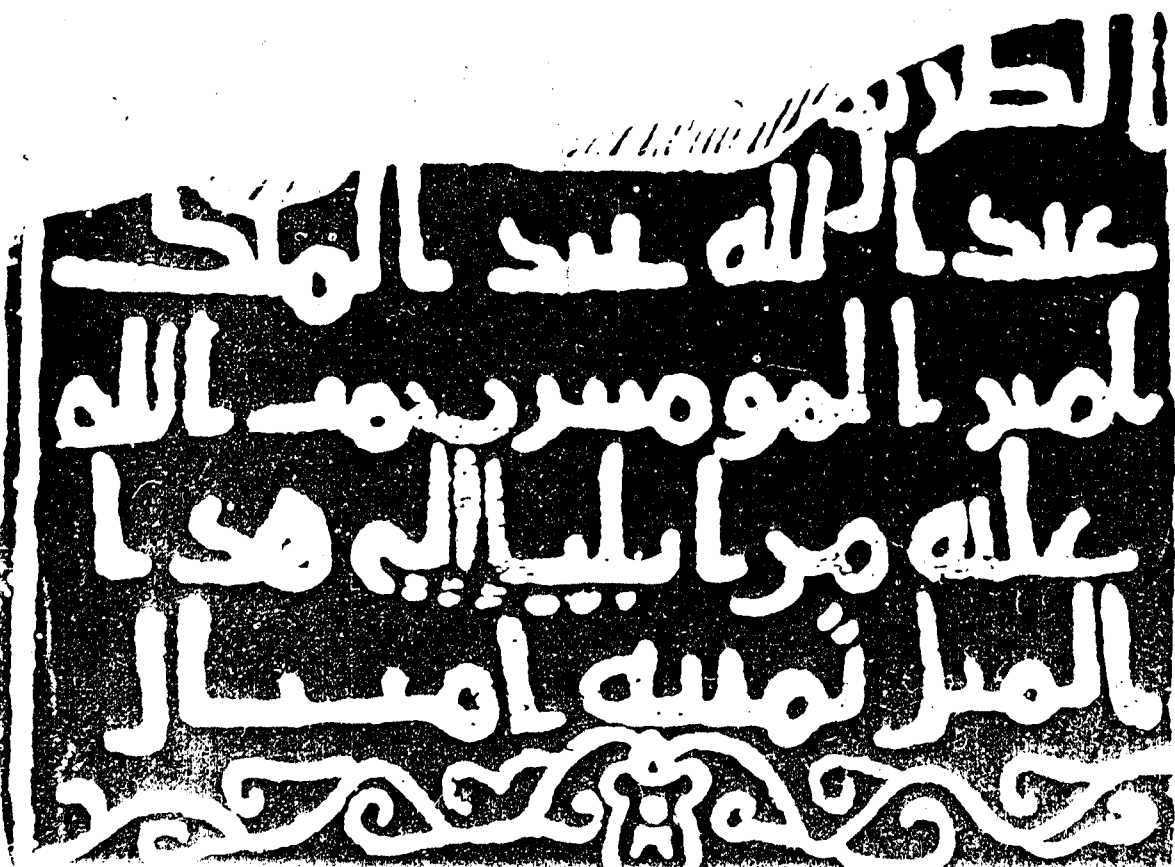 الطريق
عبد الله عبد الملك
امير المومنين رحمت الله
عليه من ايليا الي هذا
الميل ثمنيه اميال